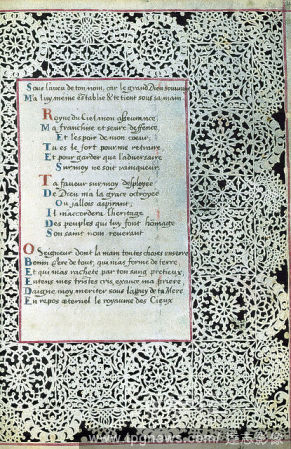 Sous l'aveu de ton nom, car le grand Dieu souverain
M'a luy mesme establie & te tient sous sa main.
Royne du Ciel mon asseurance,
Ma franchise et seure deffence,
Et l'espoir de mon coeur,
Tu es le fort pour me retraire
Et pour garder que l'adversaire
Sur moy ne soit vainqueur.
Ta faveur sur moy desployee
De Dieu m'a la grace octroyee
Ou j'allois aspirant,
Il m'accordera l'heritage
Des peuples qui luy font homage
Son saint nom reverant
O Seigneur dont la main toutes choses enserre
Benin Pere de tout, qui m'as formé de terre,
Et qui m'as racheté par ton sang pretieux,
Entens mes tristes cris, exauce ma priere,
Daigne moy meriter sous l'appuy de ta Mere
En repos aeternel le royaume des Cieux
www.fpgnews.com